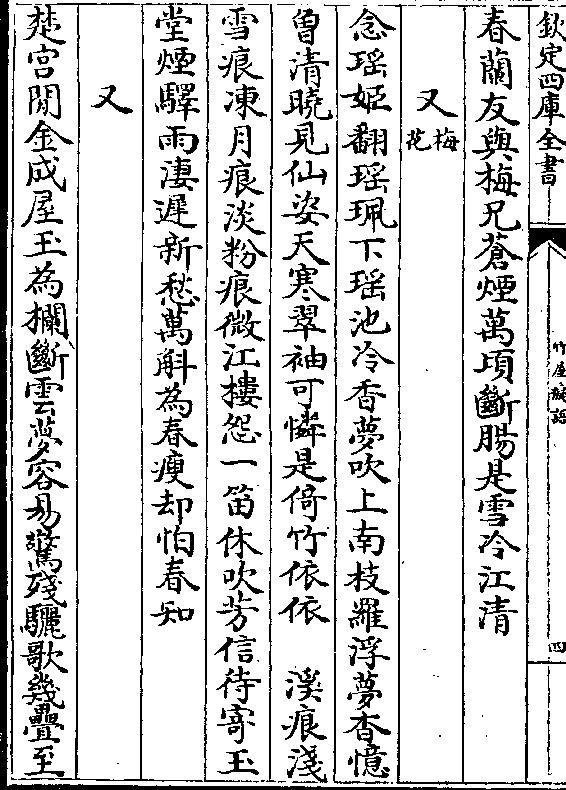 欽定四庫全書
竹屋癡語
四
春蘭友與梅兄蒼煙萬頃斷腸是雪冷江清
又梅花
念瑶姬翻瑶珮下瑶池冷香夢吹上南枝羅浮夢杳憶
曽清曉見仙姿天寒翠袖可憐是倚竹依依　溪痕淺
雪痕凍月痕淡粉痕微江樓怨一笛休吹芳信待寄玉
堂煙驛雨淒遲新愁萬斛為春瘦却怕春知
又
楚宫閒金成屋玉為欄斷雲夢容易驚殘驪歌幾疊至